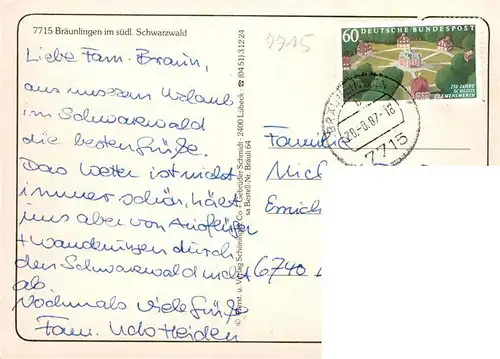 7715 Bräunlingen im südl. Schwarzwald
7715
Liebe Fam. Braun,
aus unserem Urlaub
im Schwarzwald
die besten Grüße.
Das Wetter ist nicht
immer schön, hält
uns aber von Ausflügen
+ Wanderungen durch
den Schwarzwald nicht
ab.
Nochmals viele Grüße
Fam. Udo Heiden
Schöning & Co + Gebrüder Schmidt · 2400 Lübeck ☎ (0451) 31224
Bestell-Nr. Bräuli 64
60
DEUTSCHE BUNDESPOST
250 JAHRE
SCHLOSS
CLEMENSWERTH
BRÄUNLINGEN
7715
Familie
Mich
6740